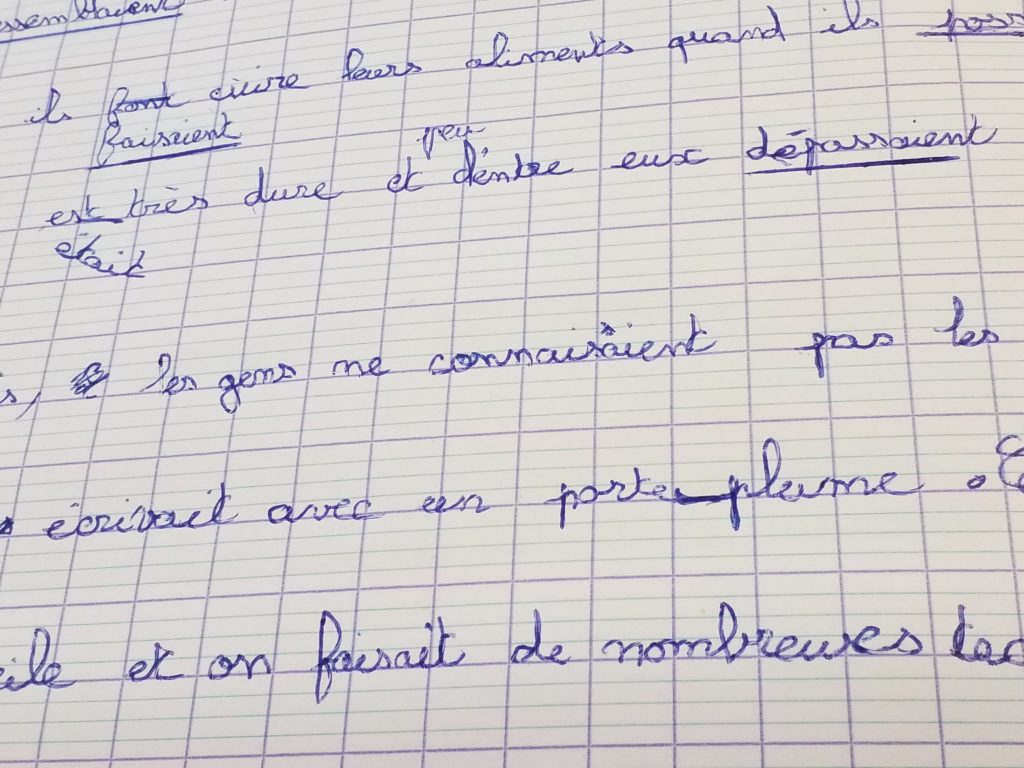 ils font cuire leurs aliments quand ils
faisaient
peu
est très dure et d'entre eux dépassaient
était
les gens ne connaissaient pas les
écrivait avec un porte-plume.
et on faisait de nombreuses